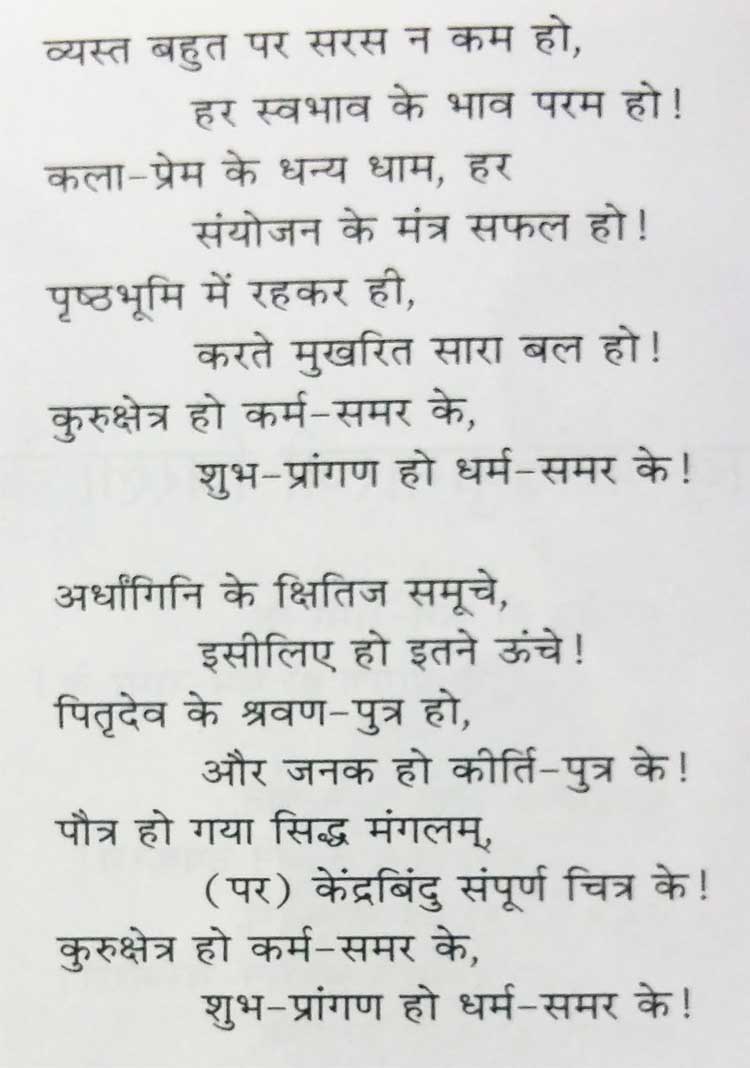 व्यस्त बहुत पर सरस न कम हो,
हर स्वभाव के भाव परम हो!
कला-प्रेम के धन्य धाम, हर
संयोजन के मंत्र सफल हो!
पृष्ठभूमि में रहकर ही,
करते मुखरित सारा बल हो!
कुरुक्षेत्र हो कर्म-समर के,
शुभ-प्रांगण हो धर्म-समर के!
अर्धांगिनि के क्षितिज समूचे,
इसीलिए हो इतने ऊंचे!
पितृदेव के श्रवण-पुत्र हो,
और जनक हो कीर्ति-पुत्र के!
पौत्र हो गया सिद्ध मंगलम्,
(पर) केंद्रबिंदु संपूर्ण चित्र के!
कुरुक्षेत्र हो कर्म-समर के,
शुभ-प्रांगण हो धर्म-समर के!